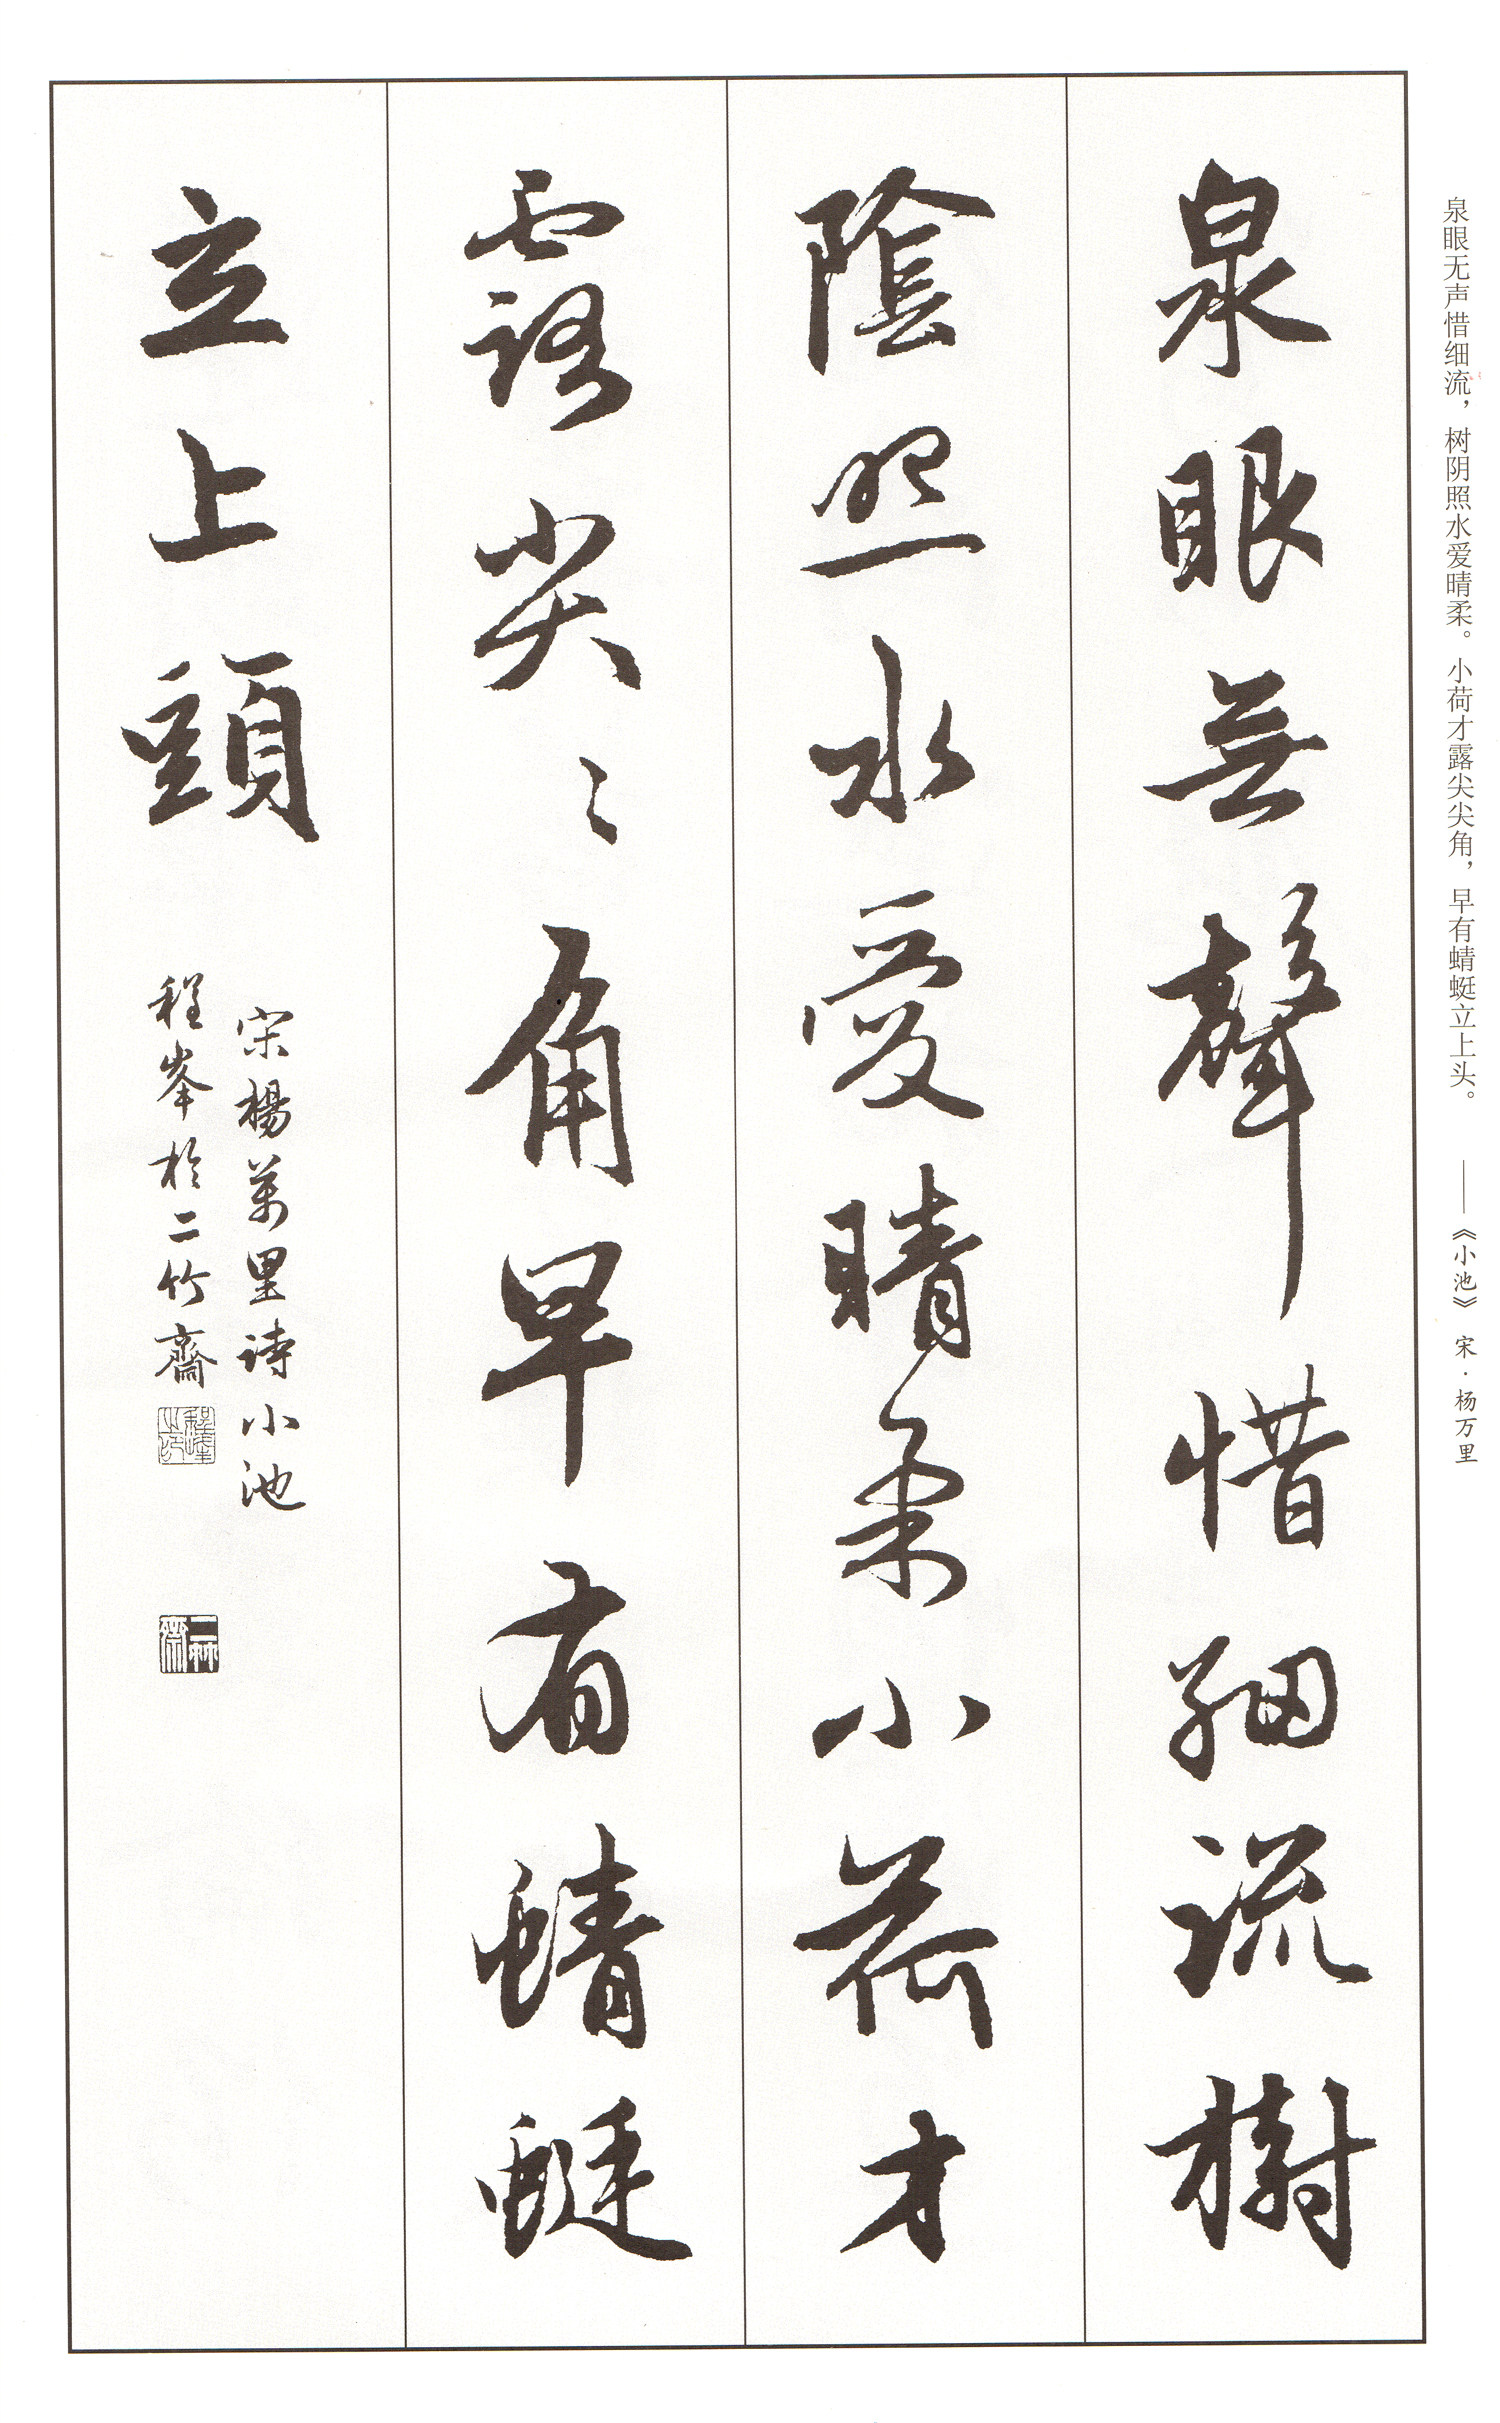 泉眼无声惜细流，树阴照水爱晴柔。小荷才露尖尖角，早有蜻蜓立上头。 ——《小池》 宋·杨万里
泉眼無聲惜細流樹
陰照水愛晴柔小荷才
露尖〻角早有蜻蜓
立上頭
宋楊萬里詩小池
程峯於二竹齋
程峰之印
二竹齋